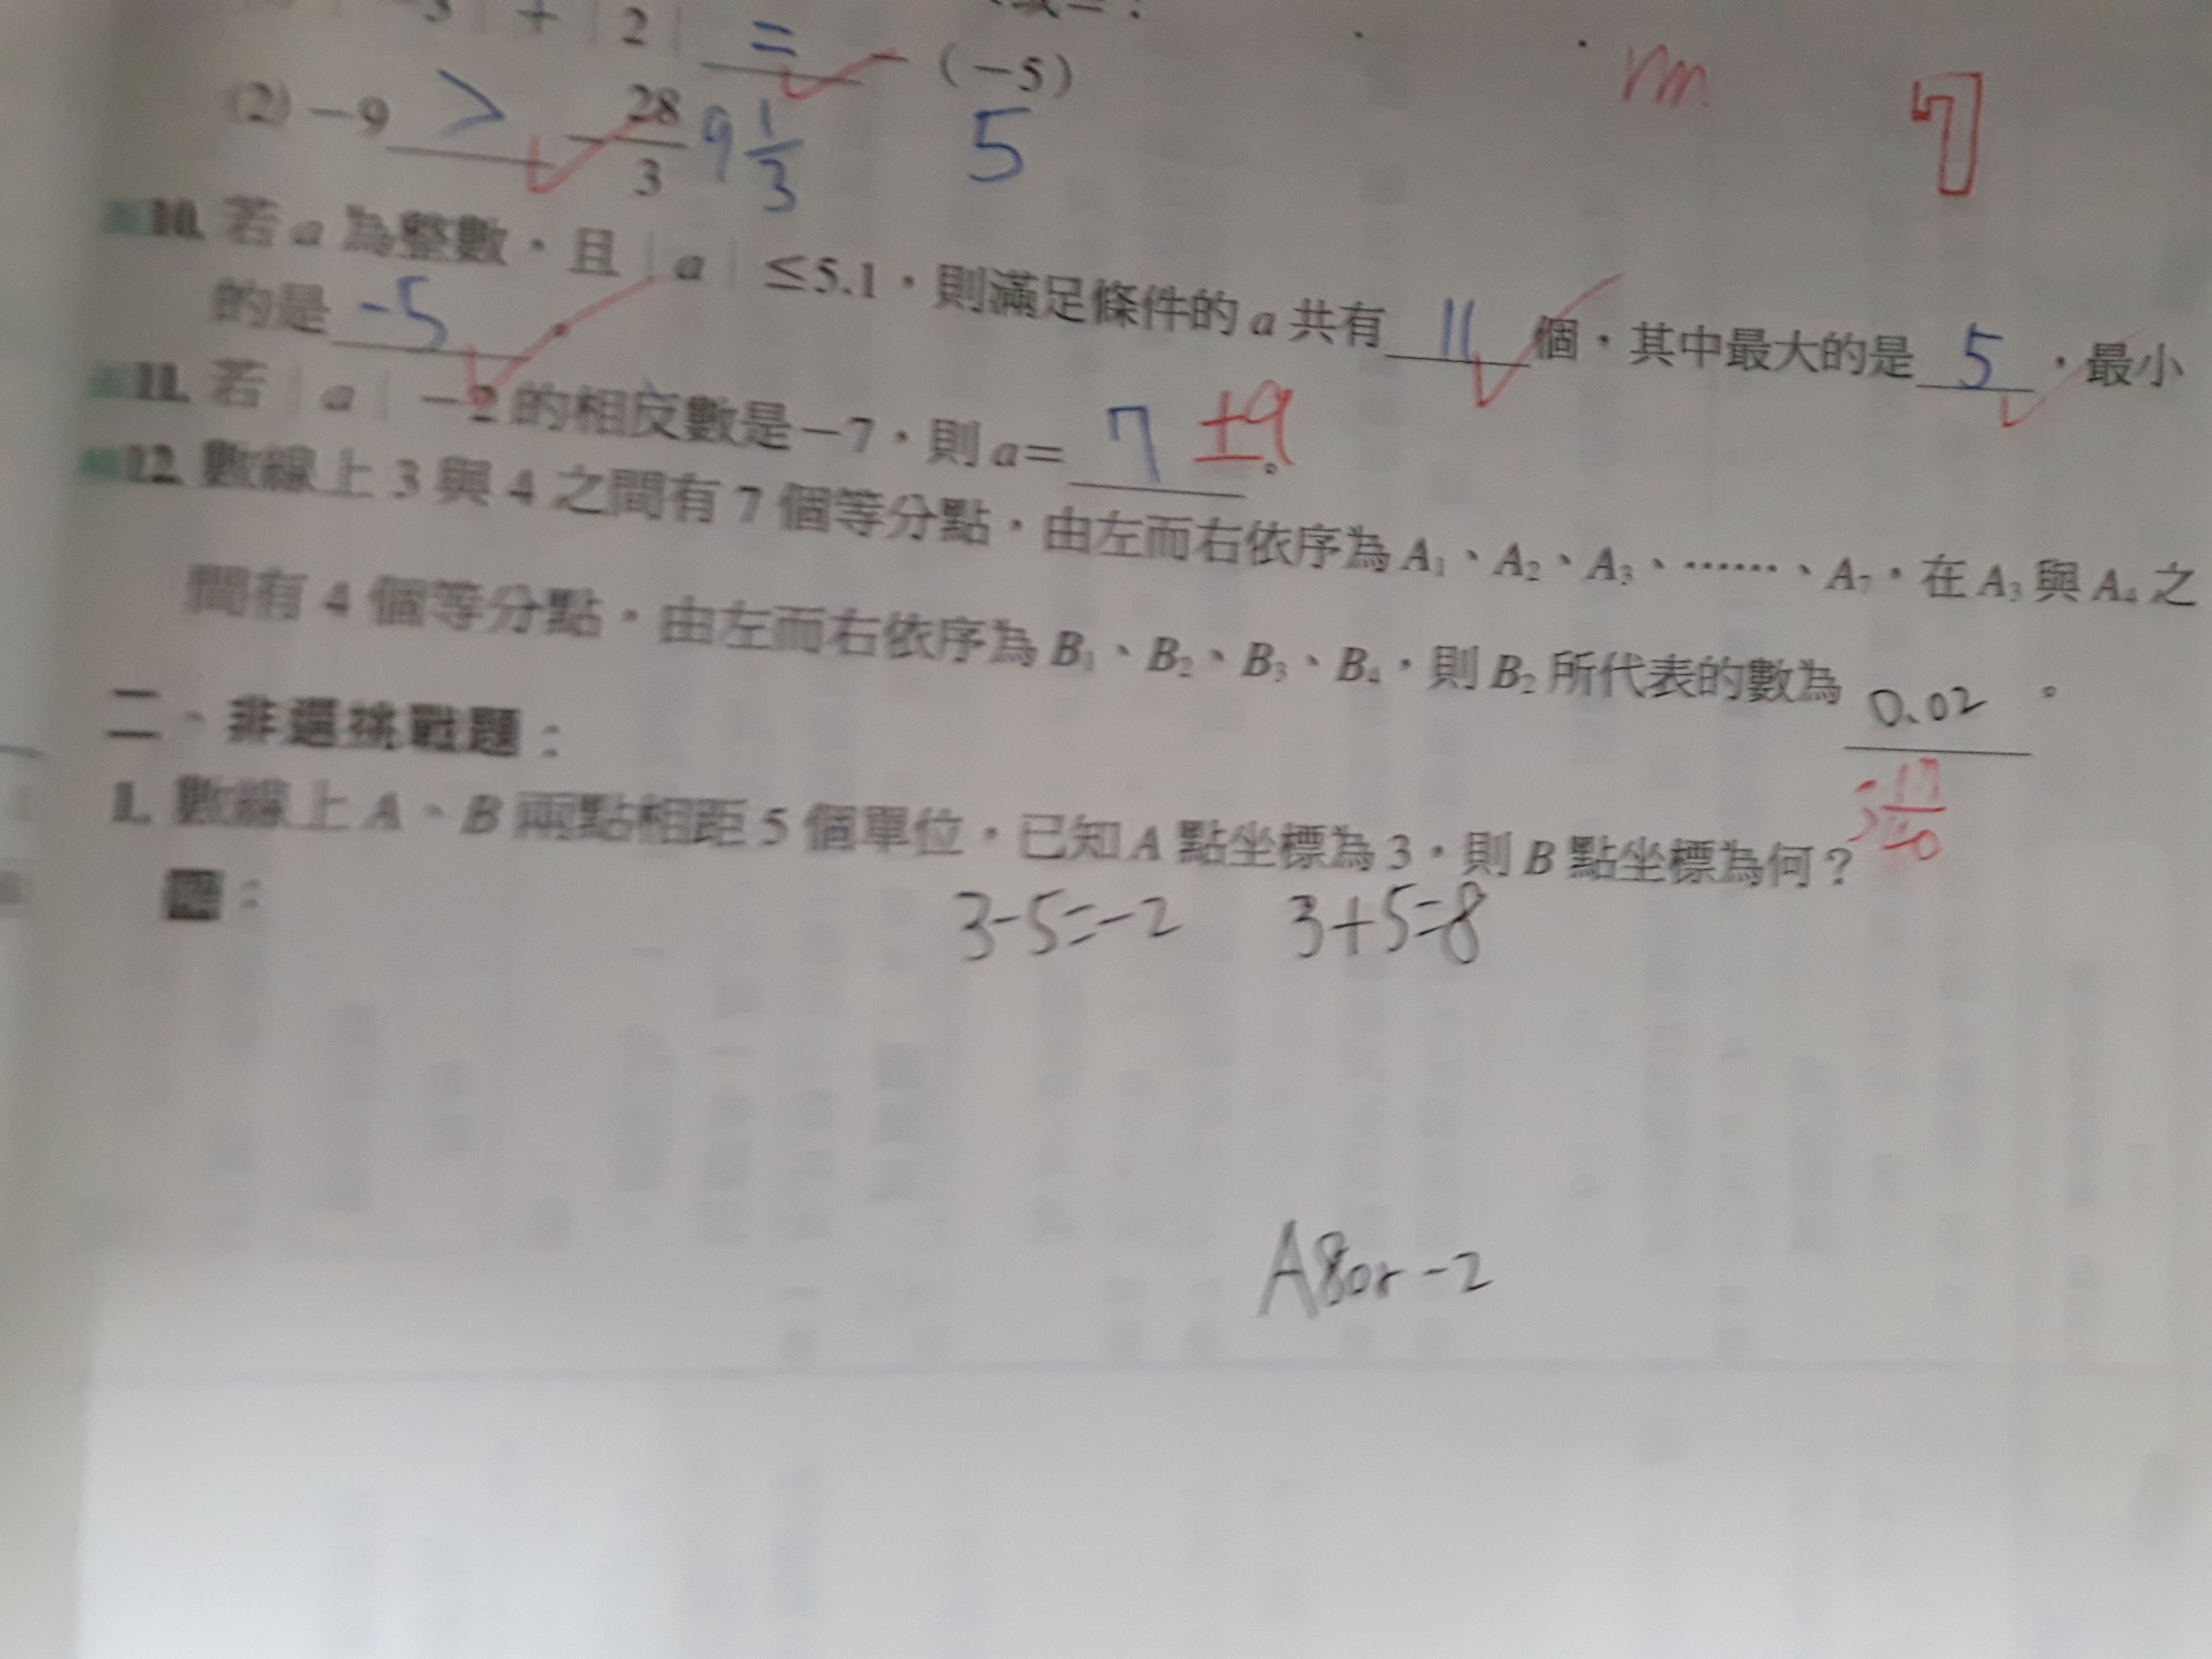 3 | + | 2 | = - (-5)
(2) -9 > -28/3 9 1/3 5
7
10. 若 a 為整數，且 | a | ≤5.1，則滿足條件的 a 共有 11 個，其中最大的是 5 ，最小
的是 -5 。
11. 若 | a | -2 的相反數是-7，則 a= 7 ±9 。
12. 數線上 3 與 4 之間有 7 個等分點，由左而右依序為 A₁、A₂、A₃、……、A₇，在 A₃ 與 A₄ 之
間有 4 個等分點，由左而右依序為 B₁、B₂、B₃、B₄，則 B₂ 所代表的數為 0.02 。
3 17/40
二、非選挑戰題：
1. 數線上 A、B 兩點相距 5 個單位，已知 A 點坐標為 3，則 B 點坐標為何？
3-5=-2 3+5=8
A 8or -2